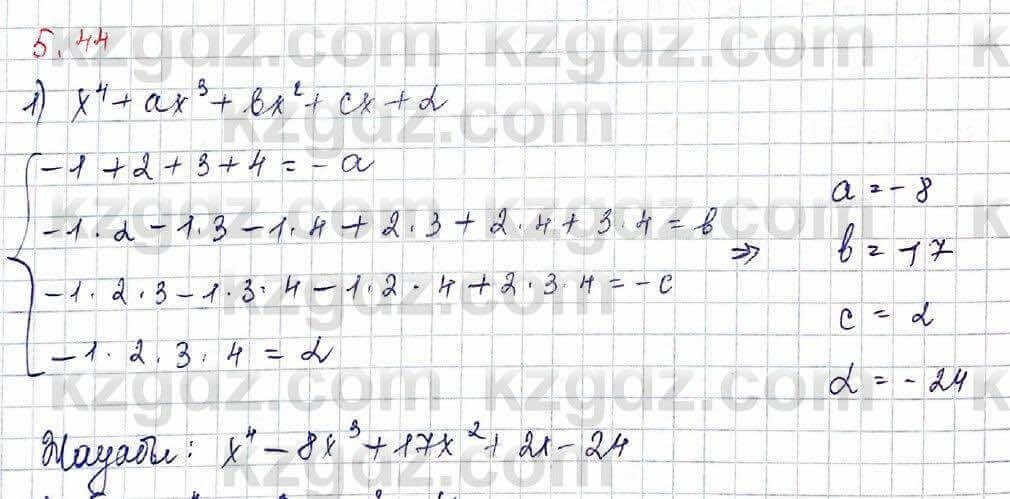 5.44
1) x⁴ + ax³ + bx² + cx + d
-1 + 2 + 3 + 4 = -a
-1·2 - 1·3 - 1·4 + 2·3 + 2·4 + 3·4 = b
-1·2·3 - 1·3·4 - 1·2·4 + 2·3·4 = -c
-1·2·3·4 = d
⇒
a = -8
b = 17
c = 2
d = -24
Жауабы: x⁴ - 8x³ + 17x² + 2x - 24
kzgdz.com kzgdz.com
kzgdz.com
kzgdz.com kzgdz.com
kzgdz.com
kzgdz.com kzgdz.com
kzgdz.com